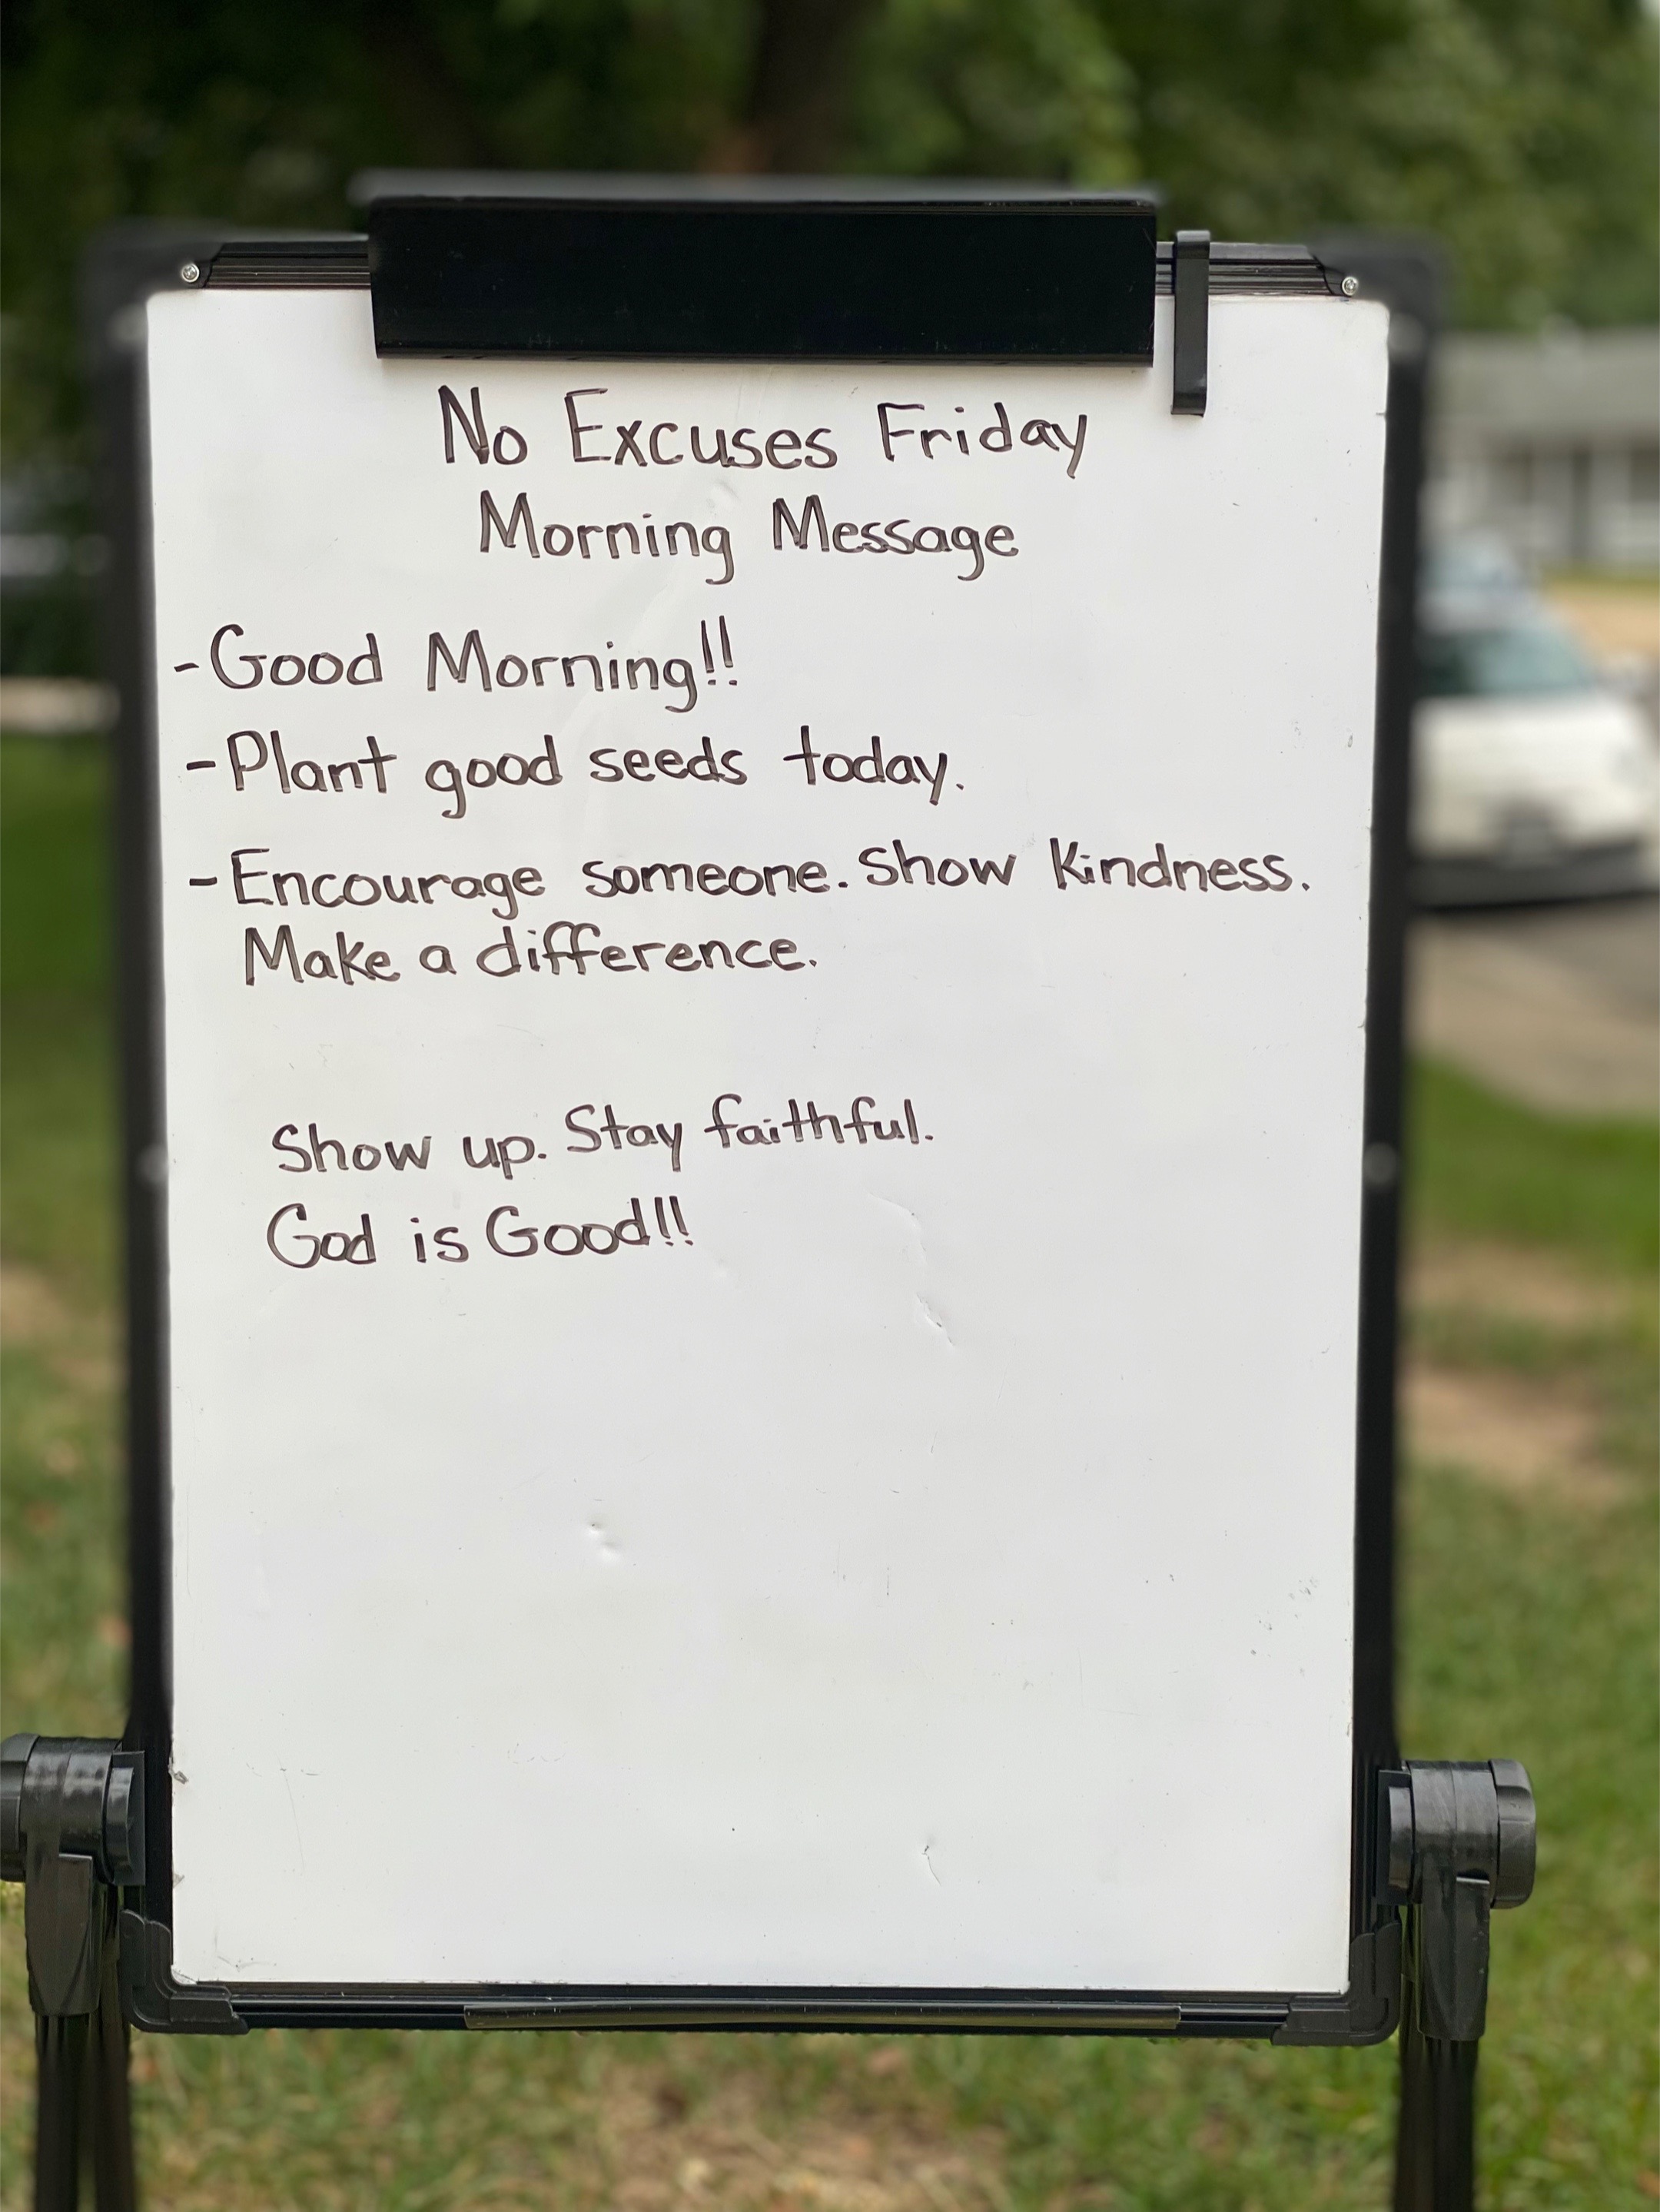 No Excuses Friday
Morning Message
-Good Morning!!
-Plant good seeds today.
-Encourage someone. Show Kindness.
Make a difference.
Show up. Stay faithful.
God is Good!!